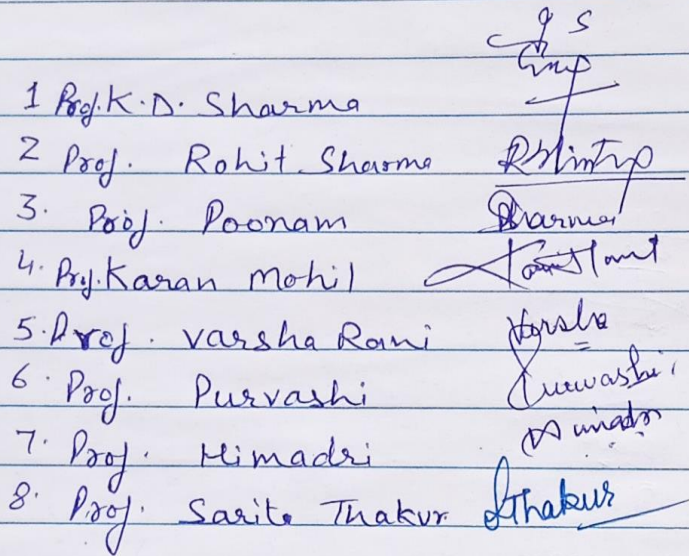 1 Prof. K. D. Sharma
2 Prof. Rohit Sharma
3. Prof. Poonam Sharma
4. Prof. Karan Mohil
5. Prof. Varsha Rani Varsha
6. Prof. Purvashi Purvashi
7. Prof. Himadri Himadri
8. Prof. Sarita Thakur SThakur